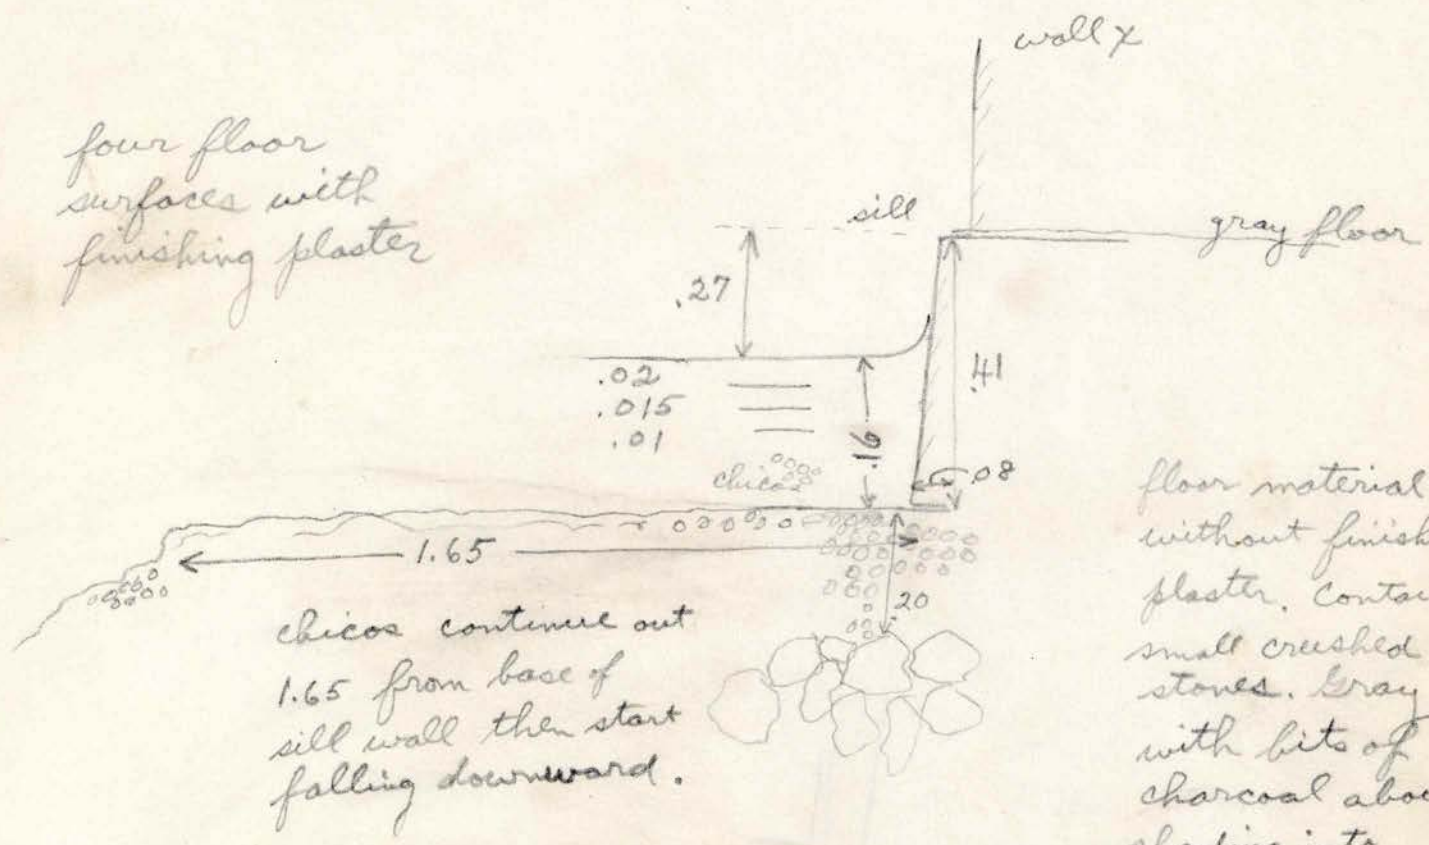 wall x
four floor
surfaces with
finishing plaster
sill
gray floor
.27
.02
.015
.01
.41
.16
chicos
.08
1.65
.20
chicos continue out
1.65 from base of
sill wall then start
falling downward.
floor material
without finish
plaster. Contai
small crushed
stones. Gray
with bits of
charcoal abo